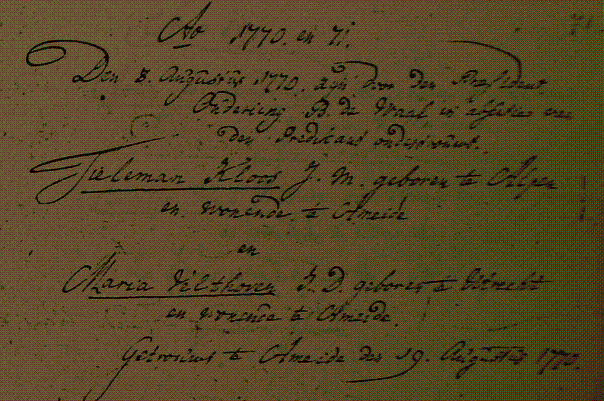 Ao 1770. en 71.
Den 3. Augustus 1770. zijn door den President
Ouderling B. de Waal in absentie van
den Predikant ondertrouwt.
Tieleman Kloos J. M. geboren te Alpen
en wonende te Ameide
en
Maria Velthoven J. D. geboren te Utrecht
en wonende te Ameide.
Getrouwt te Ameide den 19. Augustus 1770.